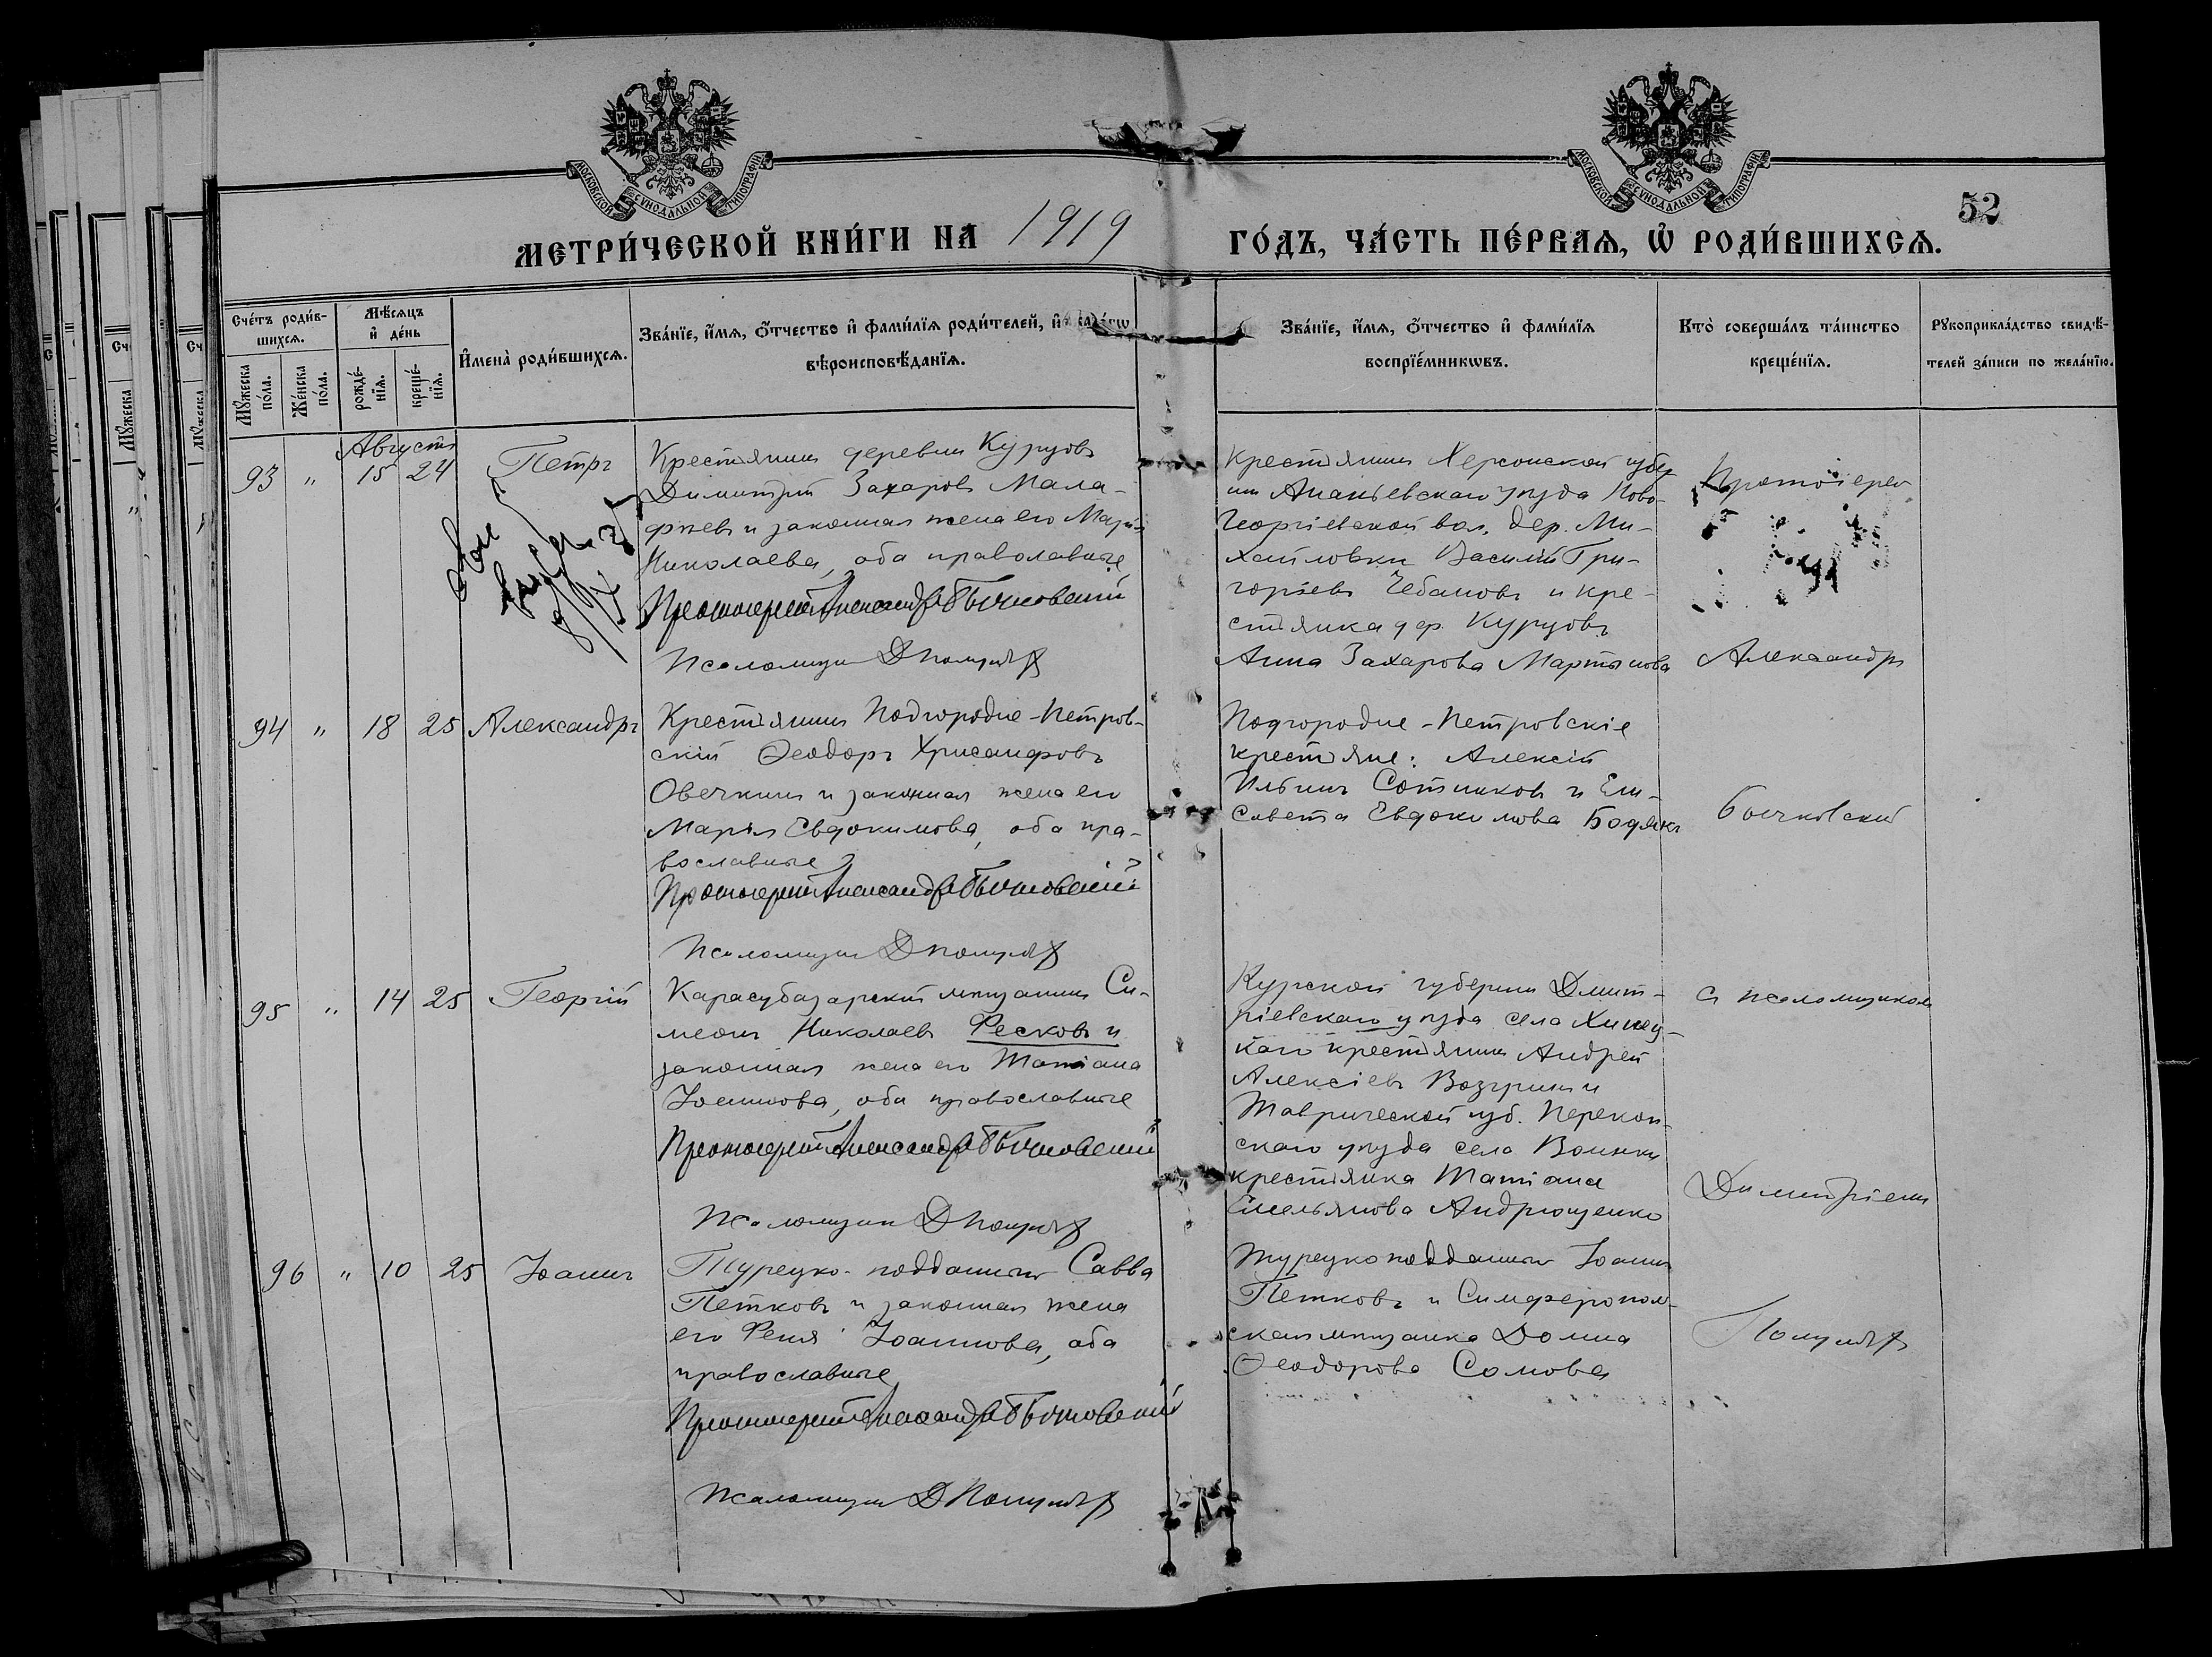 МОСКОВСКОЙ СѴНОДАЛЬНОЙ ТИПОГРАФІИ
МОСКОВСКОЙ СѴНОДАЛЬНОЙ ТИПОГРАФІИ
52
МЕТРИ́ЧЕСКОЙ КНИ́ГИ НА 1919 ГО́ДЪ, ЧА́СТЬ ПЕ́РВАѦ, Ѡ҆ РОДИ́ВШИХСѦ.
Сче́тъ роди́в-
шихсѧ.
Мꙋ́жеска по́ла.
Же́нска по́ла.
Мѣ́сѧцъ
и҆ де́нь
рожде́-
нїѧ.
креще́-
нїѧ.
И҆мена̀ роди́вшихсѧ.
Зва́нїе, и҆́мѧ, ѻ҆́тчество и҆ фами́лїѧ роди́телей, и҆ како́гѡ
вѣроисповѣ́данїѧ.
Зва́нїе, и҆́мѧ, ѻ҆́тчество и҆ фами́лїѧ
воспрїе́мникѡвъ.
Кто̀ соверша́лъ та́инство
креще́нїѧ.
Рꙋкоприкла́дство свидѣ́-
телей за́писи по жела́нїю.
Августъ
93 " 15 24 Петръ
Крестьянинъ деревни Курцовъ
Димитрій Захаровъ Мала-
фѣевъ и законная жена его Марія
Николаева, оба православные
Протоіерей Александръ Бычковскій
Псаломщикъ Д Полуэктъ
Крестьянинъ Херсонской губер
ніи Ананьевскаго уѣзда Ново-
Георгіевской вол. дер. Ми-
хайловки Василій Гри-
горіевъ Чебановъ и кре-
стьянка дер. Курцовъ
Анна Захарова Мартынова
Протоіерей
Александръ
94 " 18 25 Александръ
Крестьянинъ Подгородне-Петров-
скій Ѳеодоръ Хрисанфовъ
Овечкинъ и законная жена его
Марія Евдокимова, оба пра-
вославные
Протоіерей Александръ Бычковскій
Псаломщикъ Д
Подгородне-Петровскіе
крестьяне: Алексій
Ильинъ Сотниковъ и Ели-
савета Евдокимова Бодякъ
Бычковскій
95 " 14 25 Георгій
Карасубазарскій мѣщанинъ Си-
меонъ Николаевъ Фесковъ и
законная жена его Татіана
Іоаннова, оба православные
Протоіерей Александръ Бычковскій
Псаломщикъ Д
Курской губерніи Дмит-
ріевскаго уѣзда села
крестьянинъ Андрей
Алексіевъ Возгринъ и
Таврической губ. Перекоп-
скаго уѣзда села Воинки
крестьянка Татіана
Емельянова Андрющенко
съ псаломщикомъ
Димитріемъ
96 " 10 25 Іоаннъ
Турецко-подданный Савва
Петковъ и законная жена
его Феня Іоаннова, оба
православные
Протоіерей Александръ Бычковскій
Псаломщикъ Д
Турецкоподданный Іоаннъ
Петковъ и Симферополь-
ская мѣщанка Домна
Ѳеодорова Сомова